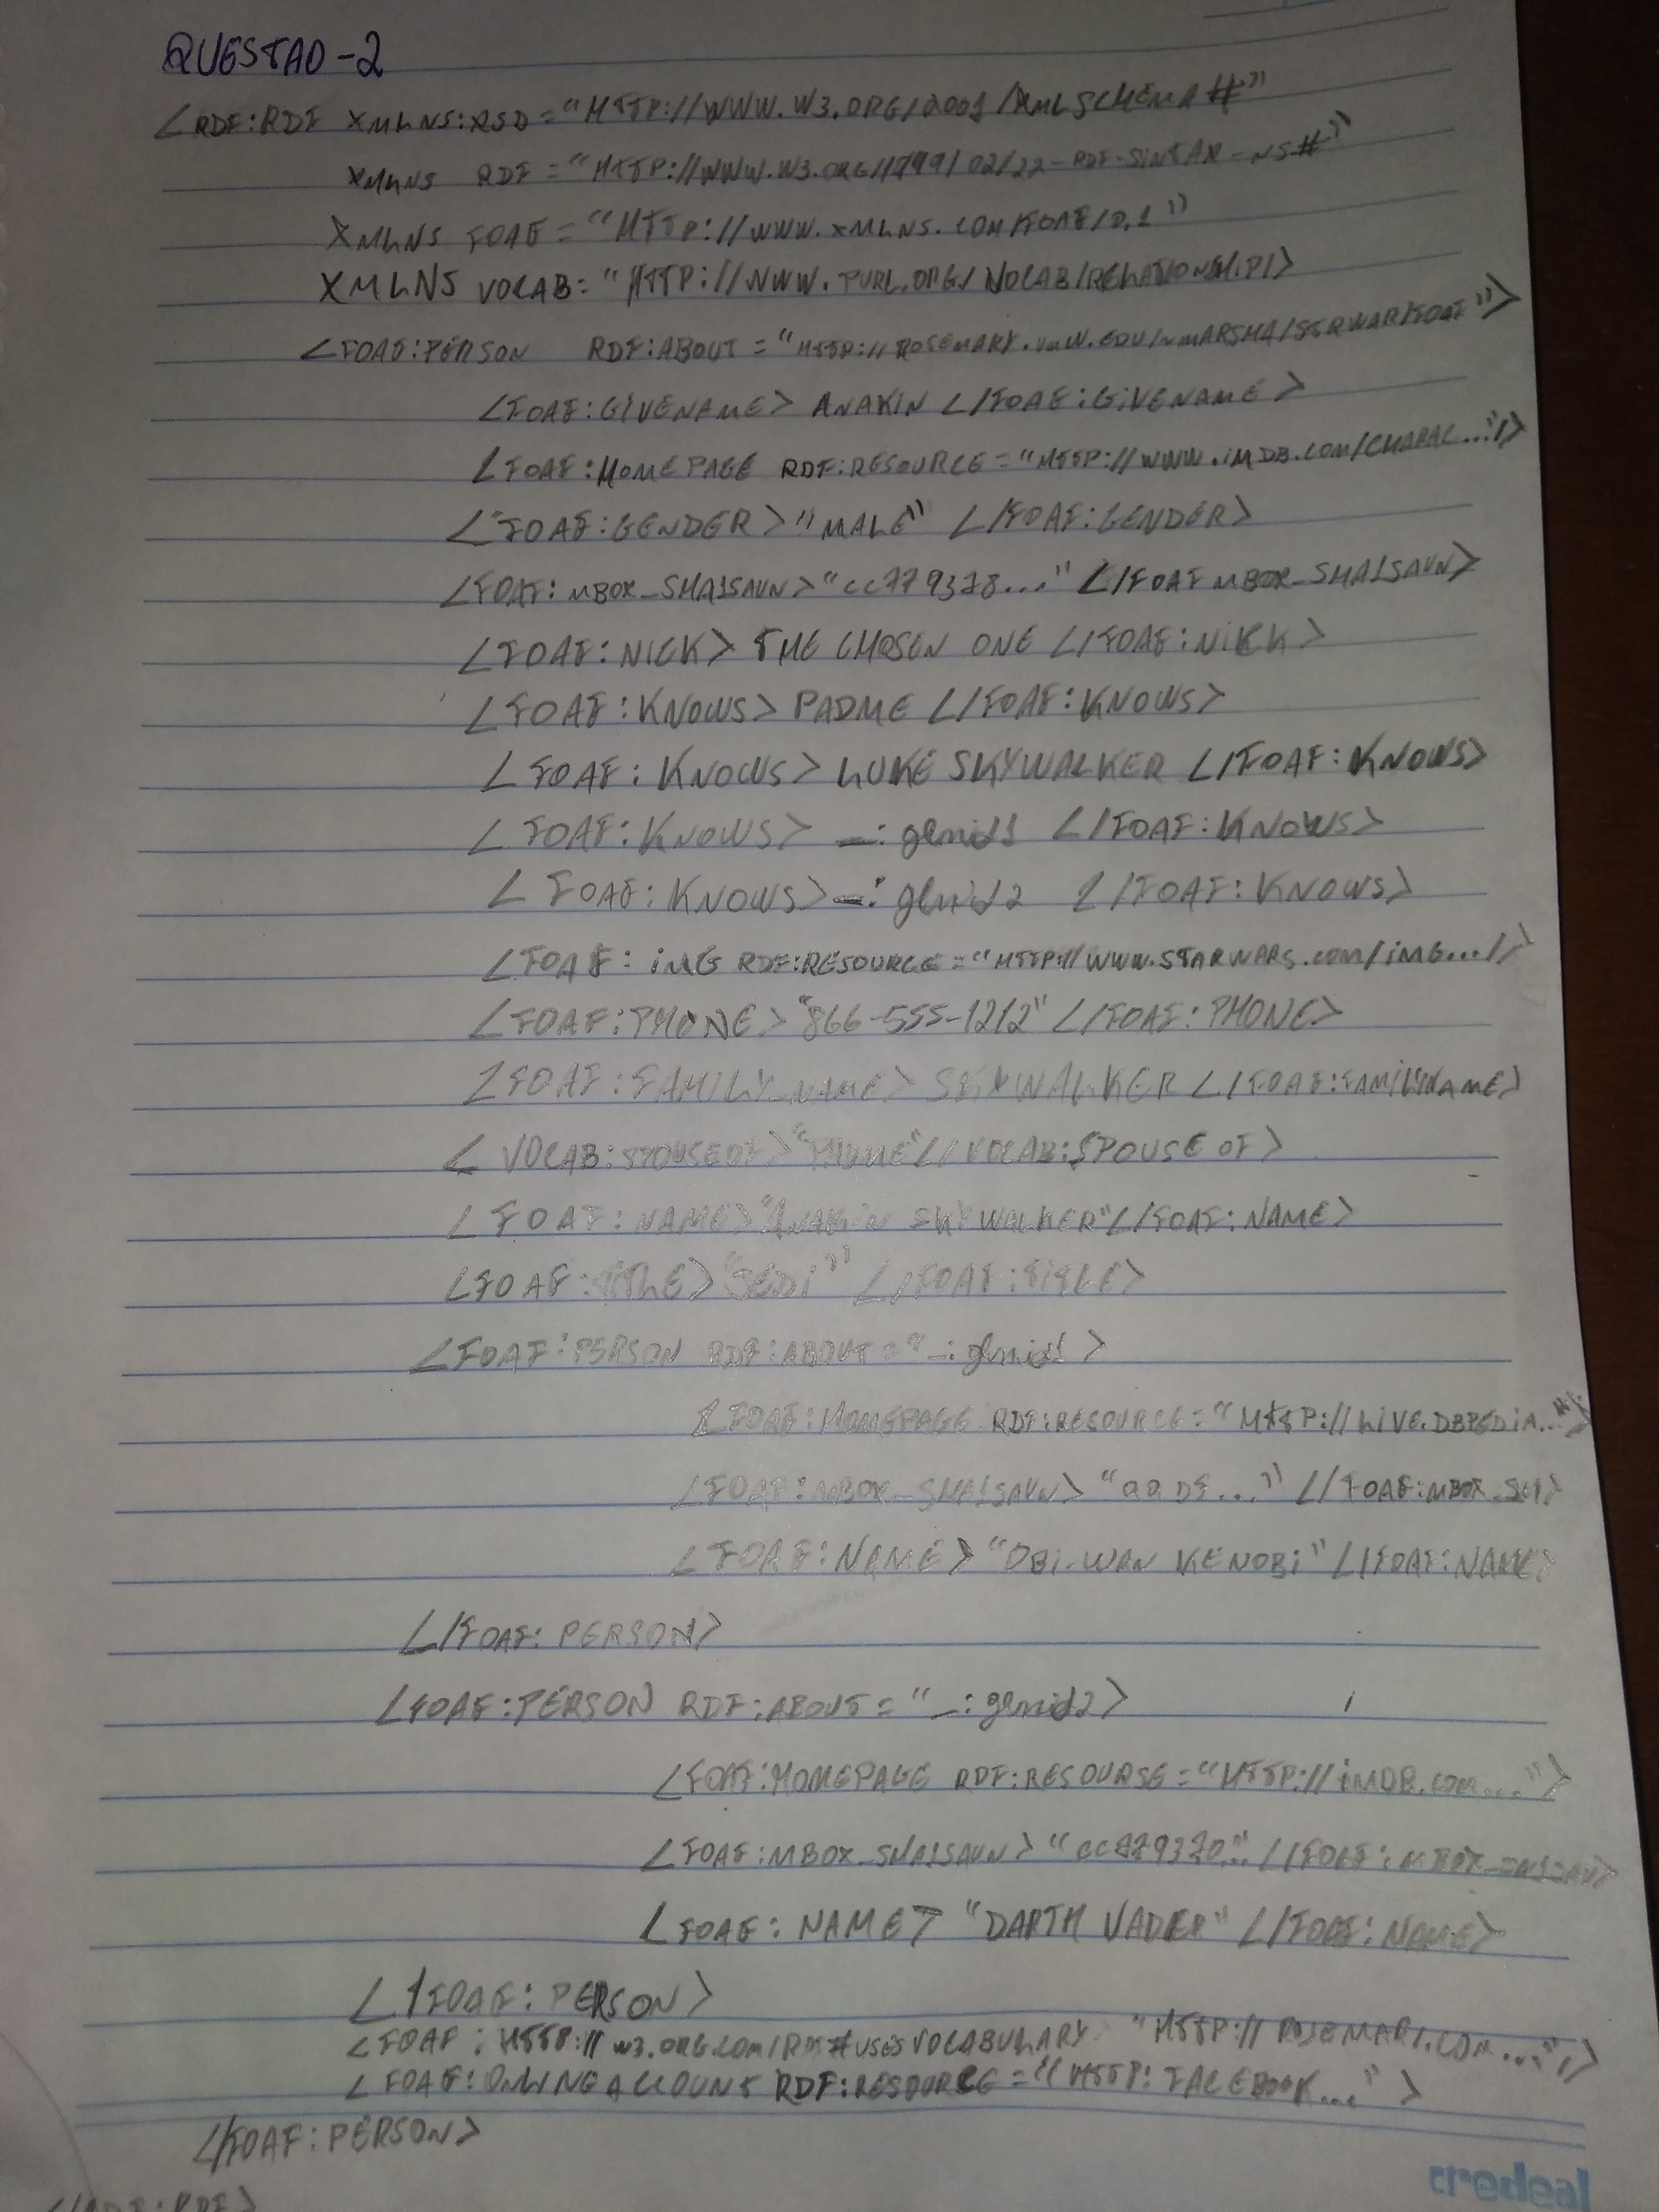 QUESTAO-2
<RDF:RDF XMLNS:RSD="HTTP://WWW.W3.ORG/2001/XMLSCHEMA#"
XMLNS RDF="HTTP://WWW.W3.ORG/1999/02/22-RDF-SINTAX-NS#"
XMLNS FOAF="HTTP://WWW.XMLNS.COM/FOAF/0.1"
XMLNS VOCAB:"HTTP://WWW.PURL.ORG/VOCAB/RELATIONSHIP/>
<FOAF:PERSON RDF:ABOUT="HTTP://ROSEMARY.UMW.EDU/~MARSHA/STRWAR/FOAF">
<FOAF:GIVENAME> ANAKIN </FOAF:GIVENAME>
<FOAF:HOMEPAGE RDF:RESOURCE="HTTP://WWW.IMDB.COM/CHARAC..."/>
<FOAF:GENDER>"MALE" </FOAF:GENDER>
<FOAF:MBOX_SHA1SAVN>"CC779378..." </FOAF MBOX_SHA1SAVN>
<FOAF:NICK> THE CHOSEN ONE </FOAF:NICK>
<FOAF:KNOWS> PADME </FOAF:KNOWS>
<FOAF:KNOWS> LUKE SKYWALKER </FOAF:KNOWS>
<FOAF:KNOWS> _:genid1 </FOAF:KNOWS>
<FOAF:KNOWS> _:genid2 </FOAF:KNOWS>
<FOAF:IMG RDF:RESOURCE="HTTP://WWW.STARWARS.COM/IMG.../>
<FOAF:PHONE>"866-555-1212" </FOAF:PHONE>
<FOAF:FAMILY_NAME> SKYWALKER </FOAF:FAMILYNAME>
<VOCAB:SPOUSEOF>"PADME"</VOCAB:SPOUSE OF>
<FOAF:NAME>"ANAKIN SKYWALKER"</FOAF:NAME>
<FOAF:TITLE>"JEDI" </FOAF:TITLE>
<FOAF:PERSON RDF:ABOUT="_:genid1>
<FOAF:HOMEPAGE RDF:RESOURCE="HTTP://LIVE.DBPEDIA..."/>
<FOAF:MBOX_SHA1SAVN> </FOAF:MBOX_
<FOAF:NAME>"OBI-WAN KENOBI"</FOAF:NAME>
</FOAF:PERSON>
<FOAF:PERSON RDF:ABOUT="_:genid2>
<FOAF:HOMEPAGE RDF:RESOURSE="HTTP://IMDB.COM...">
<FOAF:MBOX_SHA1SAVN> </FOAF:
<FOAF:NAME> "DARTH VADER" </FOAF:NAME>
</FOAF:PERSON>
<FOAF:HTTP://W3.ORG.COM/ "HTTP://ROSEMARY.COM..."/>
<FOAF:ONLINEACCOUNT RDF:RESOURCE="HTTP:FACEBOOK...">
</FOAF:PERSON>
credeal